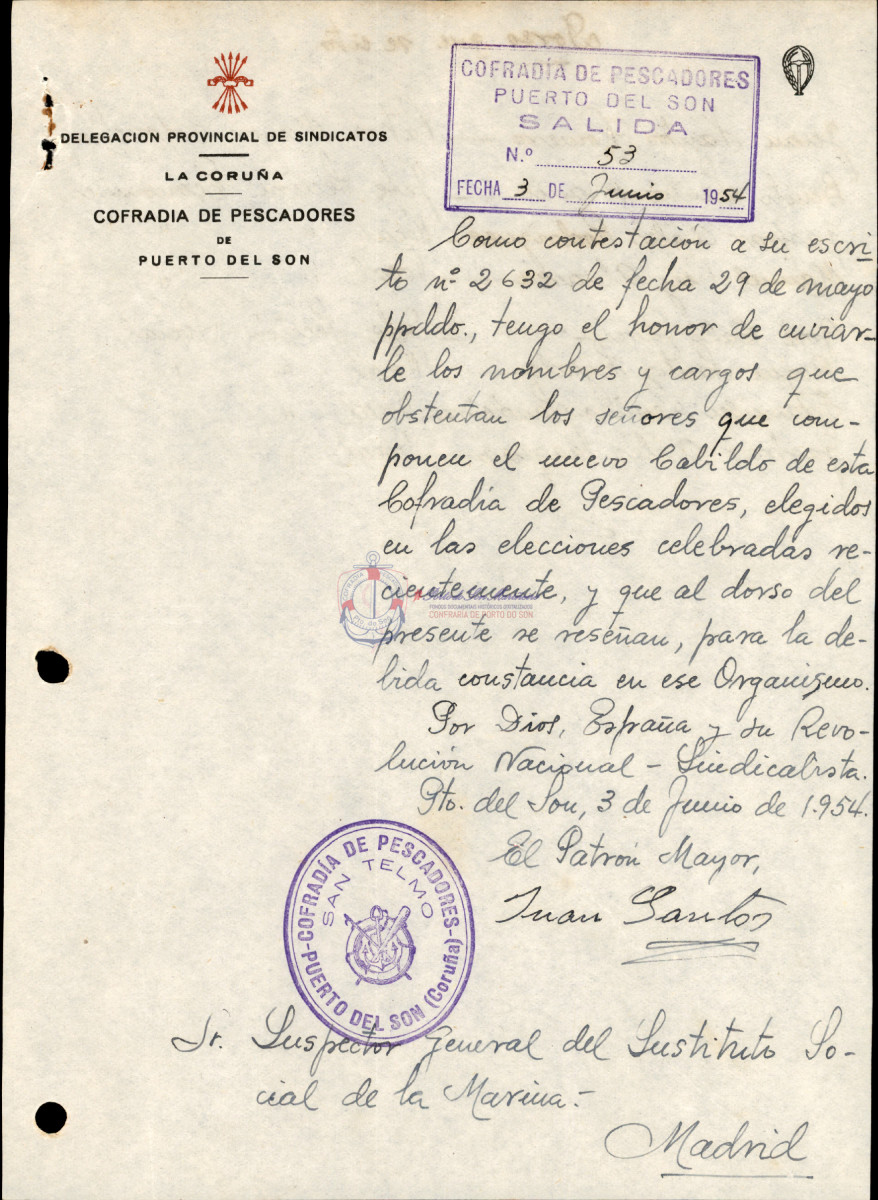 DELEGACION PROVINCIAL DE SINDICATOS
LA CORUÑA
COFRADIA DE PESCADORES
DE
PUERTO DEL SON
COFRADÍA DE PESCADORES
PUERTO DEL SON
SALIDA
N.º 53
FECHA 3 DE Junio 1954
Como contestación a su escri-
to nº 2632 de fecha 29 de mayo
ppddo., tengo el honor de enviar-
le los nombres y cargos que
obstentan los señores que com-
ponen el nuevo Cabildo de esta
Cofradía de Pescadores, elegidos
en las elecciones celebradas re-
cientemente, y que al dorso del
presente se reseñan, para la de-
bida constancia en ese Organismo.
Por Dios, España y su Revo-
lución Nacional-Sindicalista.
Pto. del Son, 3 de Junio de 1.954.
El Patrón Mayor,
Juan Santos
COFRADÍA DE PESCADORES
SAN TELMO
PUERTO DEL SON (Coruña)
Sr. Inspector General del Instituto So-
cial de la Marina.-
Madrid
FONDOS DOCUMENTAIS HISTÓRICOS DIXITALIZADOS
CONFRARÍA DE PORTO DO SON